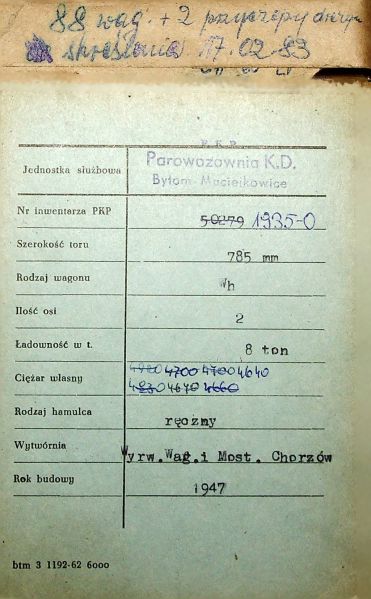 88 wag. + 2 przyczepy drezyn
skreślenia 17.02-83
P K P
Jednostka służbowa Parowozownia K.D.
Bytom-Maciejkowice
Nr inwentarza PKP 50279 1935-0
Szerokość toru 785 mm
Rodzaj wagonu Wh
Ilość osi 2
Ładowność w t. 8 ton
Ciężar własny 4920 4700 4700 4640
4830 4670 4660
Rodzaj hamulca ręczny
Wytwórnia Wyrw.Wag.i Most. Chorzów
Rok budowy 1947
btm 3 1192-62 6000